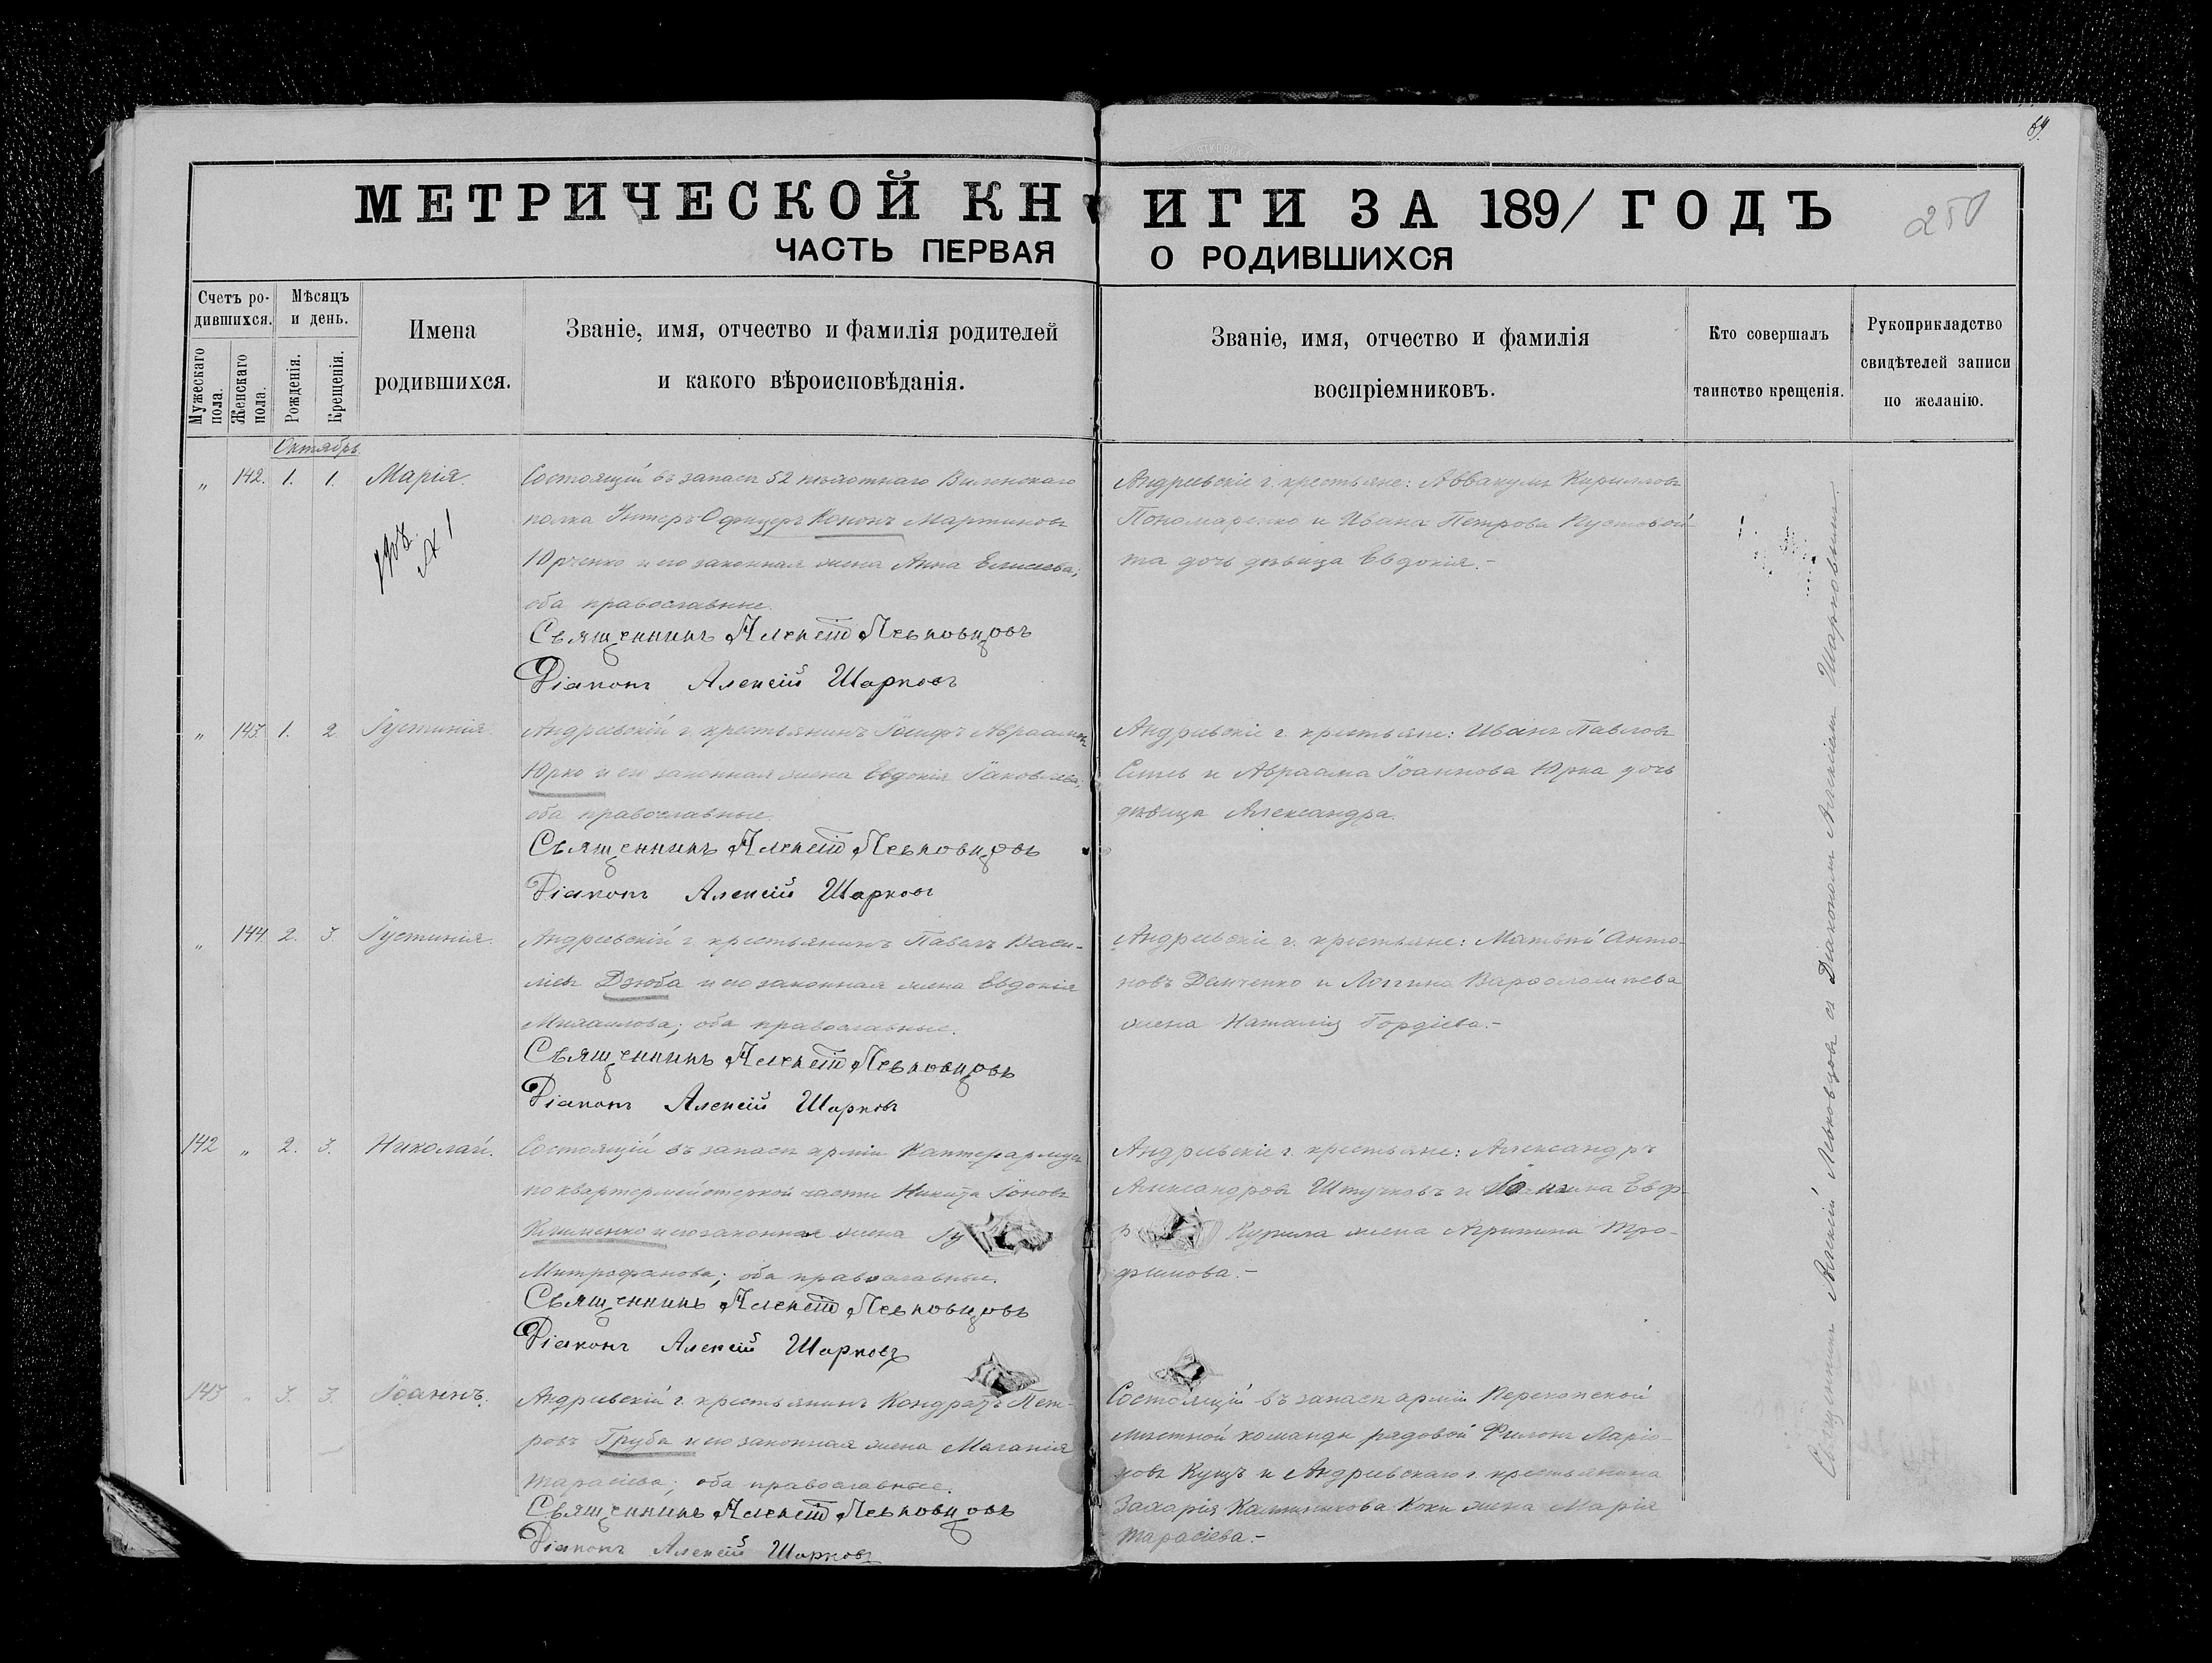 69.
МЕТРИЧЕСКОЙ КНИГИ ЗА 1891 ГОДЪ
250
ЧАСТЬ ПЕРВАЯ О РОДИВШИХСЯ
Счетъ родившихся.
Мужескаго пола.
Женскаго пола.
Мѣсяцъ и день.
Рожденія.
Крещенія.
Имена
родившихся.
Званіе, имя, отчество и фамилія родителей
и какого вѣроисповѣданія.
Званіе, имя, отчество и фамилія
воспріемниковъ.
Кто совершалъ
таинство крещенія.
Рукоприкладство
свидѣтелей записи
по желанію.
Октябрь
" 142. 1. 1. Марія.
Состоящій въ запасѣ 52 пѣхотнаго Виленскаго
полка Унтеръ-Офицеръ Кононъ Мартиновъ
Юрченко и его законная жена Анна Елисеева;
оба православные.
Священникъ Алексій Левковцовъ
Діаконъ Алексій Шарковъ
Андреевскіе г. крестьяне: Аввакумъ Кирилловъ
Пономаренко и Ивана Петрова Пустовой-
та дочь дѣвица Евдокія.-
" 143. 1. 2. Іустинія.
Андреевскій г. крестьянинъ Іосифъ Авраамовъ
Юрко и его законная жена Евдокія Іаковлева;
оба православные.
Священникъ Алексій Левковцовъ
Діаконъ Алексій Шарковъ
Андреевскіе г. крестьяне: Иванъ Павловъ
и Авраама Іоаннова Юрка дочь
дѣвица Александра.
" 144. 2. 3. Іустинія.
Андреевскій г. крестьянинъ Павелъ Васи-
ліевъ Дзюба и его законная жена Евдокія
Михаилова; оба православные.
Священникъ Алексій Левковцовъ
Діаконъ Алексій Шарковъ
Андреевскіе г. крестьяне: Матвѣй Анто-
новъ Демченко и Логгина Варѳоломѣева
жена Наталія Гордіева.-
142 " 2. 3. Николай.
Состоящій въ запасѣ арміи Каптерармусъ
по квартермейстерской части Никита Іоновъ
Клименко и его законная жена Іу
Митрофанова; оба православные.
Священникъ Алексій Левковцовъ
Діаконъ Алексій Шарковъ
Андреевскіе г. крестьяне: Александръ
Александровъ Штучковъ и
Курила жена Агрипина Тро-
фимова.-
143 " 3. 3. Іоаннъ.
Андреевскій г. крестьянинъ Кондратъ Пет-
ровъ Груба и его законная жена Маланія
Тарасіева; оба православные.
Священникъ Алексій Левковцовъ
Діаконъ Алексій Шарковъ
Состоящій въ запасѣ арміи Перекопской
мѣстной команды рядовой Филонъ Ларіо-
новъ Кущъ и Андреевскаго г. крестьянина
Захарія Коки жена Марія
Тарасіева.-
Священникъ Алексій Левковцовъ съ Діакономъ Алексіемъ Шарковымъ.